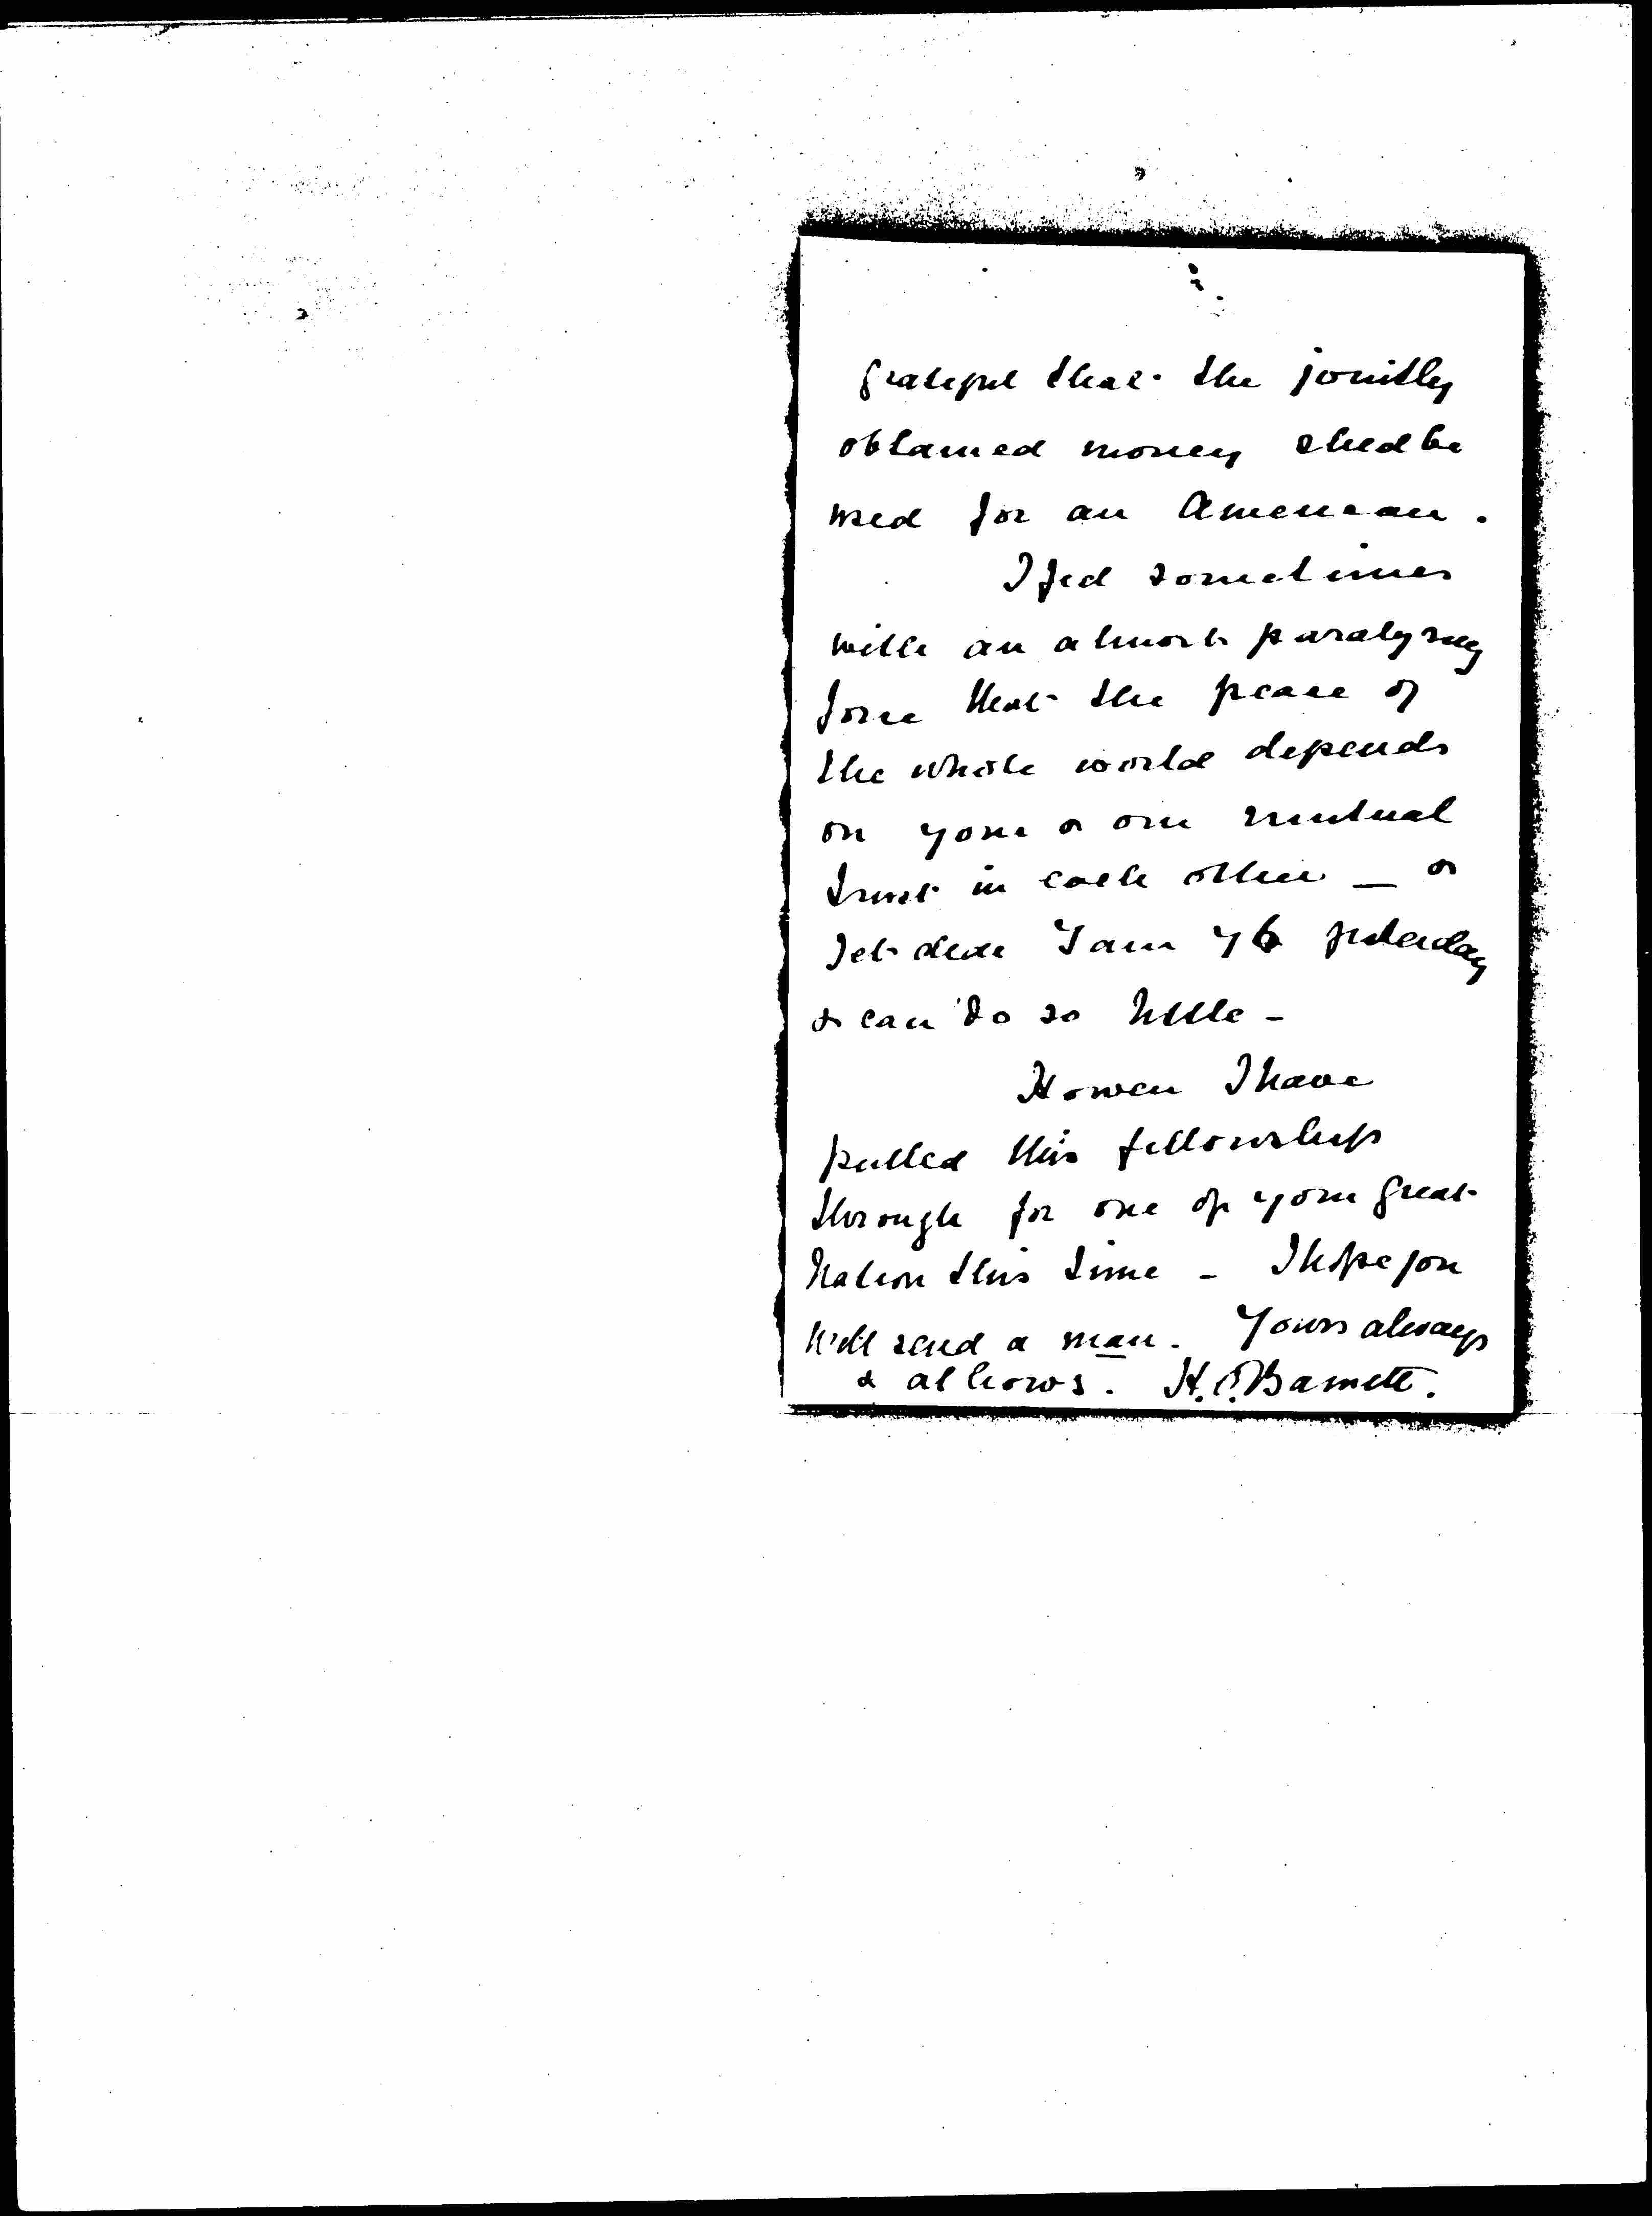 grateful that the jointly
obtained money shd be
used for an American.
I feel sometimes
with an almost paralysing
force that the peace of
the whole world depends
on your & our mutual
trust in each other — &
yet dear I am 76 yesterday
& can do so little -
Howev I have
pulled this fellowship
through for one of your great
Nation this time - I hope you
will send a man. Yours always
& al hows. H.O. Barnett.